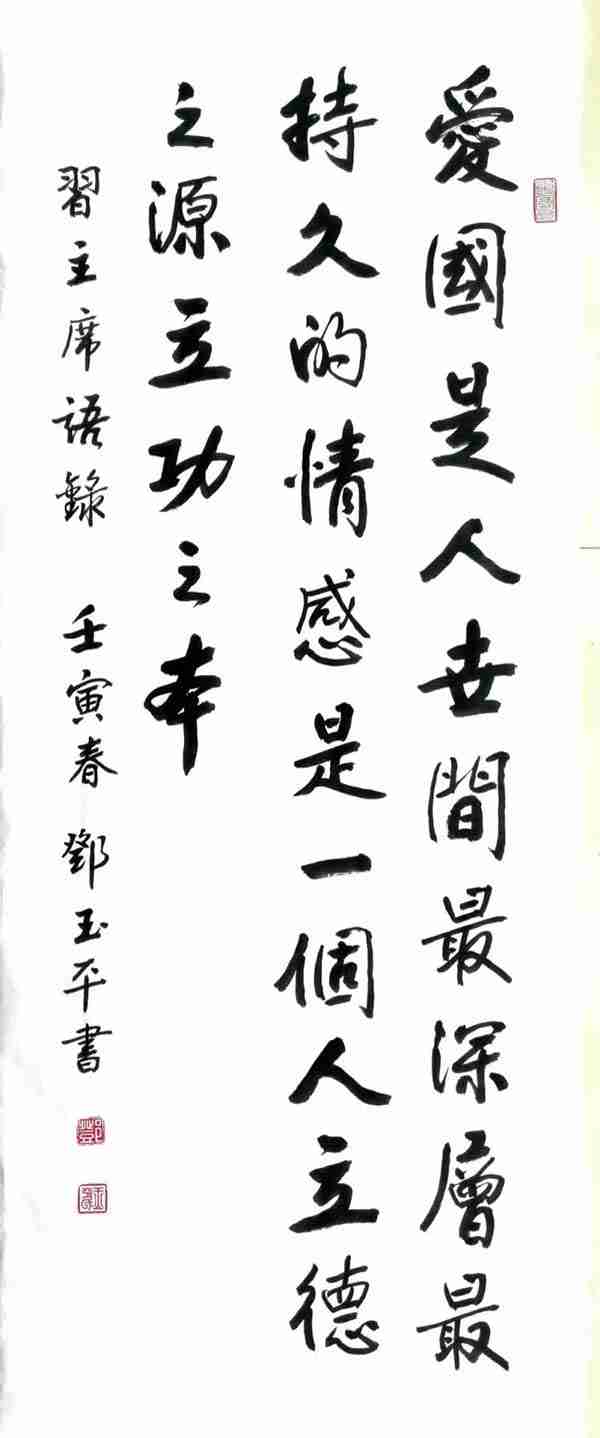 愛國是人世間最深層最
持久的情感是一個人立德
之源立功之本
習主席語錄 壬寅春 鄧玉平書